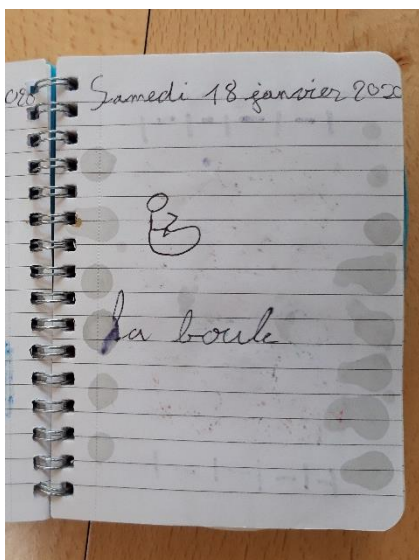 Samedi 18 janvier 2020
La boule